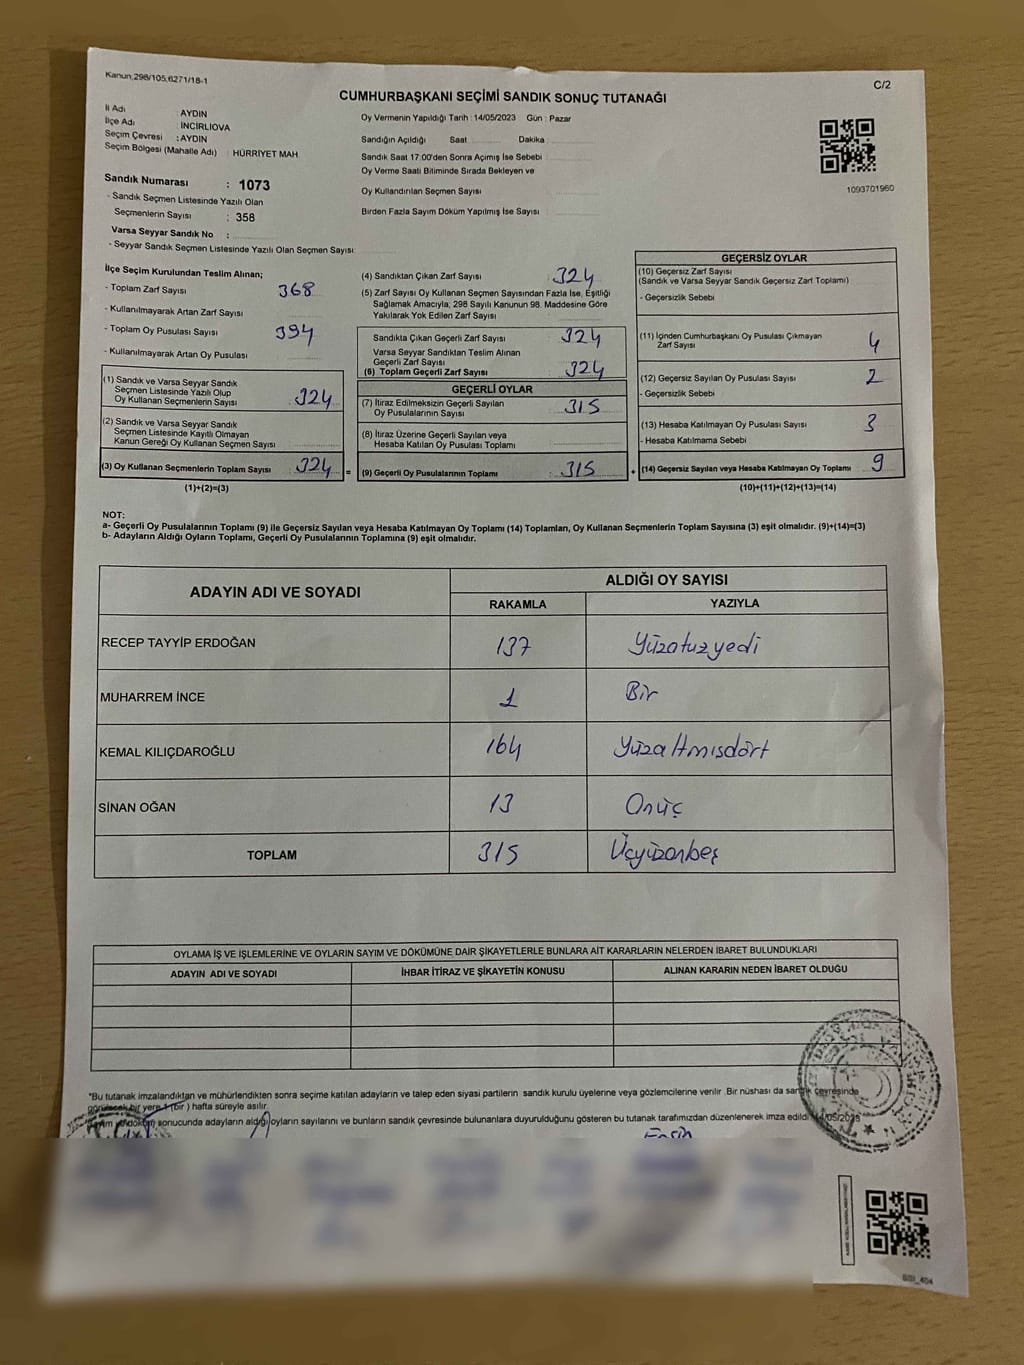 Kanun:298/105,6271/18-1
C/2
CUMHURBAŞKANI SEÇİMİ SANDIK SONUÇ TUTANAĞI
İl Adı : AYDIN
İlçe Adı : İNCİRLİOVA
Seçim Çevresi : AYDIN
Seçim Bölgesi (Mahalle Adı) : HÜRRİYET MAH
Sandık Numarası : 1073
- Sandık Seçmen Listesinde Yazılı Olan
Seçmenlerin Sayısı : 358
Varsa Seyyar Sandık No :
- Seyyar Sandık Seçmen Listesinde Yazılı Olan Seçmen Sayısı:
Oy Vermenin Yapıldığı Tarih : 14/05/2023 Gün : Pazar
Sandığın Açıldığı Saat Dakika
Sandık Saat 17:00'den Sonra Açımış İse Sebebi
Oy Verme Saati Bitiminde Sırada Bekleyen ve
Oy Kullandırılan Seçmen Sayısı
Birden Fazla Sayım Döküm Yapılmış İse Sayısı
1093701960
İlçe Seçim Kurulundan Teslim Alınan;
- Toplam Zarf Sayısı 368
- Kullanılmayarak Artan Zarf Sayısı
- Toplam Oy Pusulası Sayısı 394
- Kullanılmayarak Artan Oy Pusulası
(1) Sandık ve Varsa Seyyar Sandık
Seçmen Listesinde Yazılı Olup
Oy Kullanan Seçmenlerin Sayısı 324
(2) Sandık ve Varsa Seyyar Sandık
Seçmen Listesinde Kayıtlı Olmayan
Kanun Gereği Oy Kullanan Seçmen Sayısı
(3) Oy Kullanan Seçmenlerin Toplam Sayısı 324
(1)+(2)=(3)
(4) Sandıktan Çıkan Zarf Sayısı 324
(5) Zarf Sayısı Oy Kullanan Seçmen Sayısından Fazla İse, Eşitliği
Sağlamak Amacıyla, 298 Sayılı Kanunun 98. Maddesine Göre
Yakılarak Yok Edilen Zarf Sayısı
Sandıkta Çıkan Geçerli Zarf Sayısı 324
Varsa Seyyar Sandıktan Teslim Alınan
Geçerli Zarf Sayısı
(6) Toplam Geçerli Zarf Sayısı 324
GEÇERLİ OYLAR
(7) İtiraz Edilmeksizin Geçerli Sayılan
Oy Pusulalarının Sayısı 315
(8) İtiraz Üzerine Geçerli Sayılan veya
Hesaba Katılan Oy Pusulası Toplamı
= (9) Geçerli Oy Pusulalarının Toplamı 315
GEÇERSİZ OYLAR
(10) Geçersiz Zarf Sayısı
(Sandık ve Varsa Seyyar Sandık Geçersiz Zarf Toplamı)
- Geçersizlik Sebebi
(11) İçinden Cumhurbaşkanı Oy Pusulası Çıkmayan
Zarf Sayısı 4
(12) Geçersiz Sayılan Oy Pusulası Sayısı 2
- Geçersizlik Sebebi
(13) Hesaba Katılmayan Oy Pusulası Sayısı 3
- Hesaba Katılmama Sebebi
+ (14) Geçersiz Sayılan veya Hesaba Katılmayan Oy Toplamı 9
(10)+(11)+(12)+(13)=(14)
NOT:
a- Geçerli Oy Pusulalarının Toplamı (9) ile Geçersiz Sayılan veya Hesaba Katılmayan Oy Toplamı (14) Toplamları, Oy Kullanan Seçmenlerin Toplam Sayısına (3) eşit olmalıdır. (9)+(14)=(3)
b- Adayların Aldığı Oyların Toplamı, Geçerli Oy Pusulalarının Toplamına (9) eşit olmalıdır.
ADAYIN ADI VE SOYADI ALDIĞI OY SAYISI
RAKAMLA YAZIYLA
RECEP TAYYİP ERDOĞAN 137 Yüzotuzyedi
MUHARREM İNCE 1 Bir
KEMAL KILIÇDAROĞLU 164 Yüzaltmışdört
SİNAN OĞAN 13 Onüç
TOPLAM 315 Üçyüzonbeş
OYLAMA İŞ VE İŞLEMLERİNE VE OYLARIN SAYIM VE DÖKÜMÜNE DAİR ŞİKAYETLERLE BUNLARA AİT KARARLARIN NELERDEN İBARET BULUNDUKLARI
ADAYIN ADI VE SOYADI İHBAR İTİRAZ VE ŞİKAYETİN KONUSU ALINAN KARARIN NEDEN İBARET OLDUĞU
*Bu tutanak imzalandıktan ve mühürlendikten sonra seçime katılan adayların ve talep eden siyasi partilerin sandık kurulu üyelerine veya gözlemcilerine verilir. Bir nüshası da sandık çevresinde
görülecek bir yere 1 (bir) hafta süreyle asılır.
sonucunda adayların aldığı oyların sayılarını ve bunların sandık çevresinde bulunanlara duyurulduğunu gösteren bu tutanak tarafımızdan düzenlenerek imza edildi.